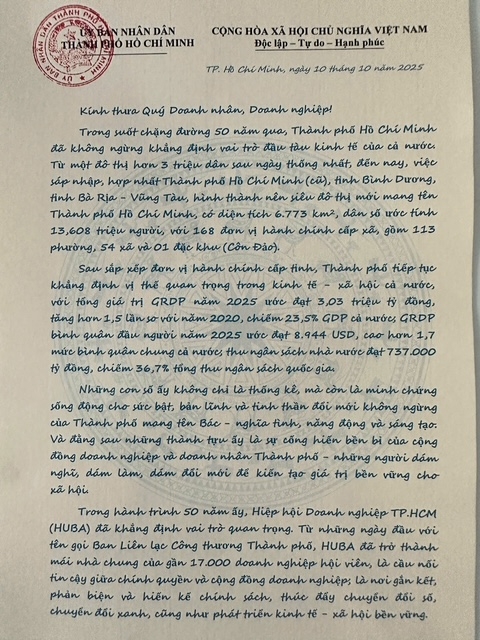 ỦY BAN NHÂN DÂN
THÀNH PHỐ HỒ CHÍ MINH
CỘNG HÒA XÃ HỘI CHỦ NGHĨA VIỆT NAM
Độc lập – Tự do – Hạnh phúc
TP. Hồ Chí Minh, ngày 10 tháng 10 năm 2025
Kính thưa Quý Doanh nhân, Doanh nghiệp!
Trong suốt chặng đường 50 năm qua, Thành phố Hồ Chí Minh
đã không ngừng khẳng định vai trò đầu tàu kinh tế của cả nước.
Từ một đô thị hơn 3 triệu dân sau ngày thống nhất, đến nay, việc
sáp nhập, hợp nhất Thành phố Hồ Chí Minh (cũ), tỉnh Bình Dương,
tỉnh Bà Rịa - Vũng Tàu, hình thành nên siêu đô thị mới mang tên
Thành phố Hồ Chí Minh, có diện tích 6.773 km², dân số ước tính
13,608 triệu người, với 168 đơn vị hành chính cấp xã, gồm 113
phường, 54 xã và 01 đặc khu (Côn Đảo).
Sau sắp xếp đơn vị hành chính cấp tỉnh, Thành phố tiếp tục
khẳng định vị thế quan trọng trong kinh tế - xã hội cả nước,
với tổng giá trị GRDP năm 2025 ước đạt 3,03 triệu tỷ đồng,
tăng hơn 1,5 lần so với năm 2020, chiếm 23,5% GDP cả nước; GRDP
bình quân đầu người năm 2025 ước đạt 8.944 USD, cao hơn 1,7
mức bình quân chung cả nước; thu ngân sách nhà nước đạt 737.000
tỷ đồng, chiếm 36,7% tổng thu ngân sách quốc gia.
Những con số ấy không chỉ là thống kê, mà còn là minh chứng
sống động cho sức bật, bản lĩnh và tinh thần đổi mới không ngừng
của Thành phố mang tên Bác - nghĩa tình, năng động và sáng tạo.
Và đằng sau những thành tựu ấy là sự cống hiến bền bỉ của cộng
đồng doanh nghiệp và doanh nhân Thành phố - những người dám
nghĩ, dám làm, dám đổi mới để kiến tạo giá trị bền vững cho
xã hội.
Trong hành trình 50 năm ấy, Hiệp hội Doanh nghiệp TP.HCM
(HUBA) đã khẳng định vai trò quan trọng. Từ những ngày đầu với
tên gọi Ban Liên lạc Công thương Thành phố, HUBA đã trở thành
mái nhà chung của gần 17.000 doanh nghiệp hội viên, là cầu nối
tin cậy giữa chính quyền và cộng đồng doanh nghiệp; là nơi gắn kết,
phản biện và hiến kế chính sách, thúc đẩy chuyển đổi số,
chuyển đổi xanh, cũng như phát triển kinh tế - xã hội bền vững.